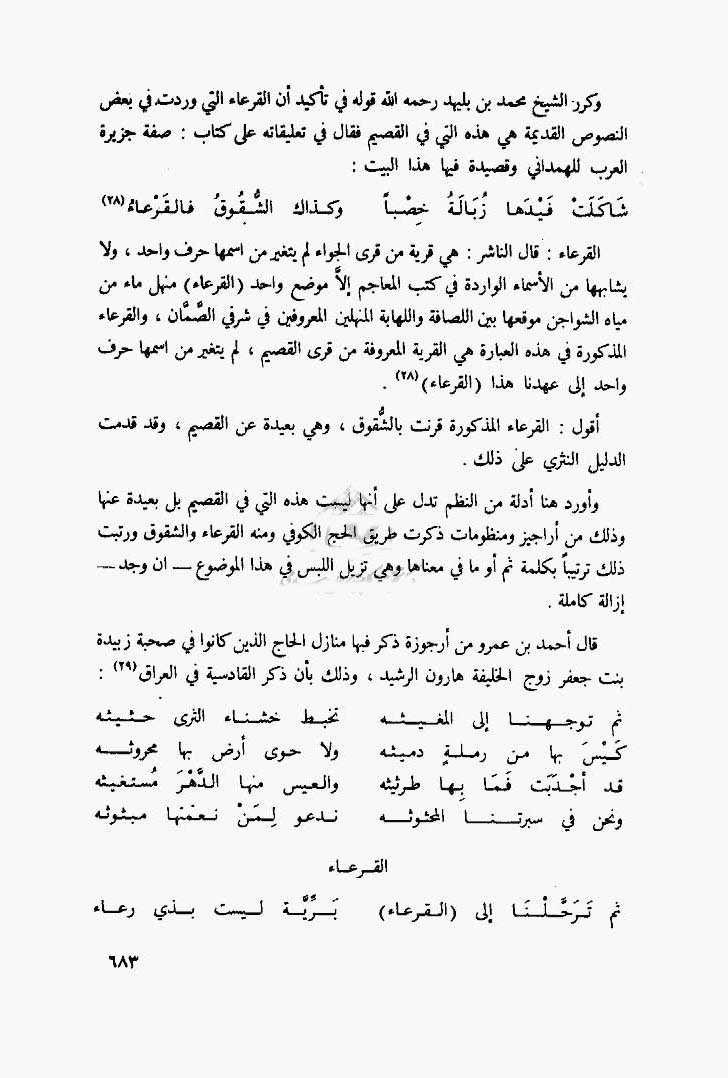 وكرر الشيخ محمد بن بليهد رحمه الله قوله في تأكيد أن القرعاء التي وردت في بعض
النصوص القديمة هي هذه التي في القصيم فقال في تعليقاته على كتاب : صفة جزيرة
العرب للهمداني وقصيدة فيها هذا البيت :
شَاكَلَتْ فَيْدَهَا زُبَالَةُ خِصْباً وكذاك الشُّقُوقُ فالقَرْعاءُ(٢٨)
القرعاء : قال الناشر : هي قرية من قرى الجواء لم يتغير من اسمها حرف واحد ، ولا
يشابهها من الأسماء الواردة في كتب المعاجم إلاَّ موضع واحد (القرعاء) منهل ماء من
مياه الشواجن موقعها بين اللصافة واللهابة المنهلين المعروفين في شرقي الصَّمَّان ، والقرعاء
المذكورة في هذه العبارة هي القرية المعروفة من قرى القصيم ، لم يتغير من اسمها حرف
واحد إلى عهدنا هذا (القرعاء)(٢٨) .
أقول : القرعاء المذكورة قرنت بالشُّقوق ، وهي بعيدة عن القصيم ، وقد قدمت
الدليل النثري على ذلك .
وأورد هنا أدلة من النظم تدل على أنها ليست هذه التي في القصيم بل بعيدة عنها
وذلك من أراجيز ومنظومات ذكرت طريق الحج الكوفي ومنه القرعاء والشقوق ورتبت
ذلك ترتيباً بكلمة ثم أو ما في معناها وهي تزيل اللبس في هذا الموضوع — ان وجد —
إزالة كاملة .
قال أحمد بن عمرو من أرجوزة ذكر فيها منازل الحاج الذين كانوا في صحبة زبيدة
بنت جعفر زوج الخليفة هارون الرشيد ، وذلك بأن ذكر القادسية في العراق(٢٩) :
ثم توجهنا إلى المغيثه تخبط خشناء الثرى حثيثه
كَيْسَ بها من رملةٍ دميثه ولا حوى أرض بها محروثه
قد أجْدَبَت فَمَا بِها طرثيثه والعيس منها الدَّهْرَ مُستغيثه
ونحن في سيرتنا المحثوثه ندعو لِمَنْ نعمتها مبثوثه
القرعاء
ثم تَرَحَّلْنَا إلى (القرعاء) بَرِّيَّة ليست بذي رعاء
٦٨٣